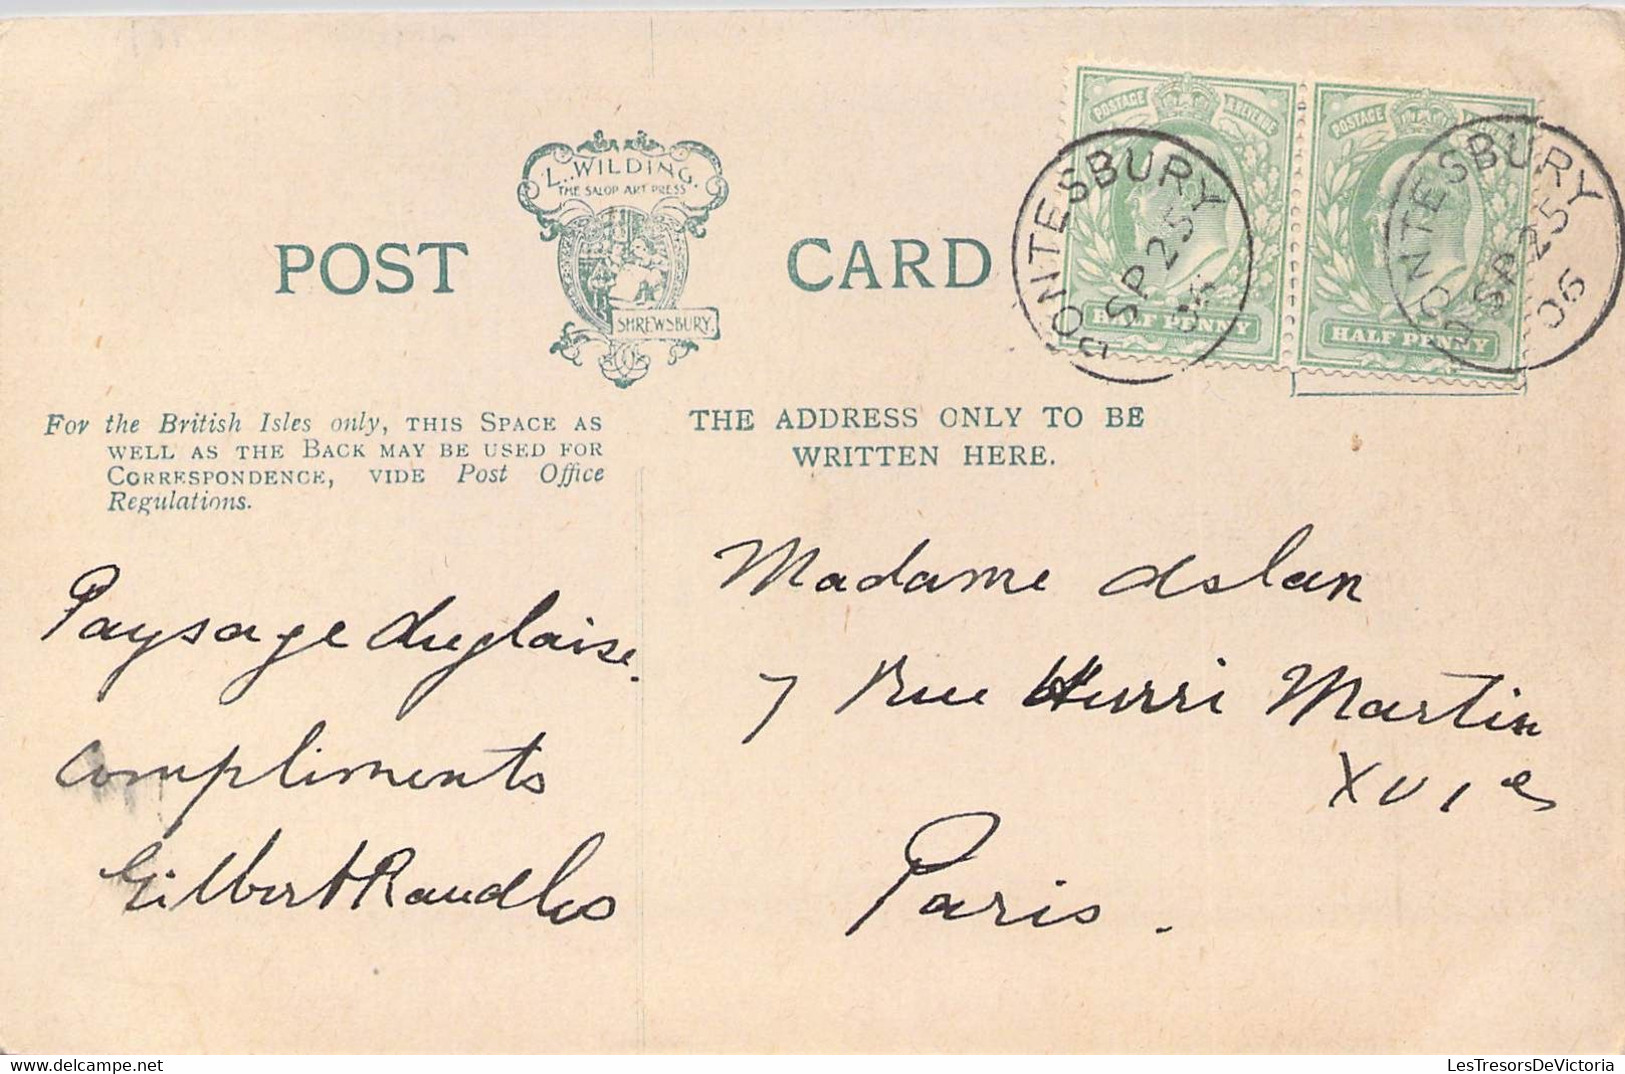 L. WILDING.
THE SALOP ART PRESS
SHREWSBURY.
POST CARD
POSTAGE & REVENUE
HALF PENNY
POSTAGE
HALF PENNY
PONTESBURY
SP 25
06
PONTESBURY
SP 25
06
For the British Isles only, THIS SPACE AS
WELL AS THE BACK MAY BE USED FOR
CORRESPONDENCE, VIDE Post Office
Regulations.
THE ADDRESS ONLY TO BE
WRITTEN HERE.
Paysage Anglaise.
compliments
Gilbert Randles
Madame Aslan
7 Rue Henri Martin
XVIe
Paris.
LesTresorsDeVictoria